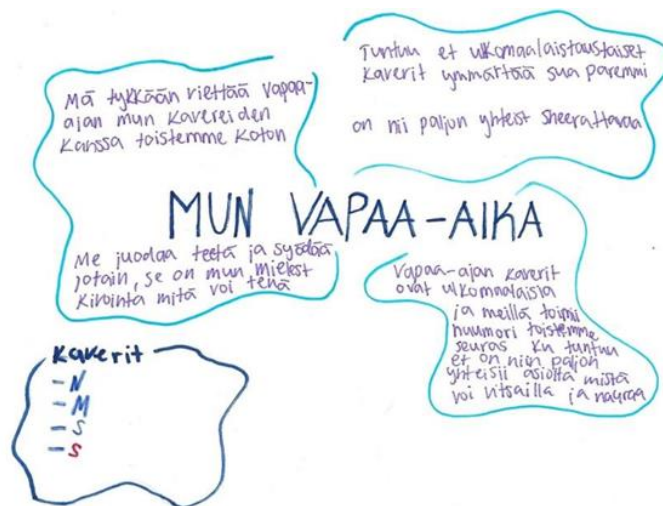 Mä tykkään viettää vapaa-
ajan mun kavereiden
kanssa toistemme koton
Tuntuu et ulkomaalaistaustaiset
kaverit ymmärtää sua paremmi
on nii paljon yhteist sheerattavaa
MUN VAPAA-AIKA
Me juodaa teetä ja syödää
jotain, se on mun mielest
kivointa mitä voi tehä
Vapaa-ajan kaverit
ovat ulkomaalaisia
ja meillä toimii
huumori toistemme
seuras ku tuntuu
et on niin paljon
yhteisii asioita mistä
voi vitsailla ja nauraa
Kaverit
- N
- M
- S
- S